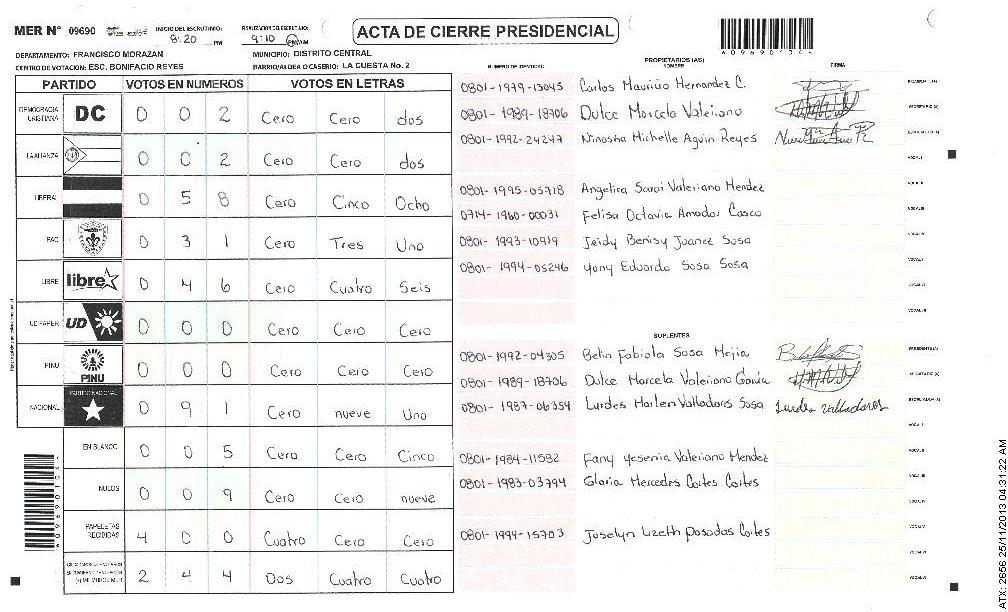 MER N° 09690 INICIO DEL ESCRUTINIO: 8:20 PM FINALIZACION DEL ESCRUTINIO: 9:10 AM/PM ACTA DE CIERRE PRESIDENCIAL
DEPARTAMENTO: FRANCISCO MORAZAN MUNICIPIO: DISTRITO CENTRAL
CENTRO DE VOTACION: ESC. BONIFACIO REYES BARRIO/ALDEA O CASERIO: LA CUESTA No. 2
PARTIDO VOTOS EN NUMEROS VOTOS EN LETRAS
DEMOCRACIA CRISTIANA DC 0 0 2 Cero Cero dos
LA ALIANZA 0 0 2 Cero Cero dos
LIBERAL 0 5 8 Cero Cinco Ocho
PAC 0 3 1 Cero Tres Uno
LIBRE libre 0 4 6 Cero Cuatro Seis
UD-FAPER UD 0 0 0 Cero Cero Cero
PINU PINU 0 0 0 Cero Cero Cero
NACIONAL PARTIDO NACIONAL 0 9 1 Cero nueve Uno
EN BLANCO 0 0 5 Cero Cero Cinco
NULOS 0 0 9 Cero Cero nueve
PAPELETAS RECIBIDAS 4 0 0 Cuatro Cero Cero
2 4 4 Dos Cuatro Cuatro
NUMERO DE IDENTIDAD PROPIETARIOS (AS) NOMBRE FIRMA
0801-1979-13045 Carlos Mauricio Hernandez C. PRESIDENTE (A)
0801-1989-18706 Dulce Marcela Valeriano SECRETARIO (A)
0801-1992-24247 Ninoska Michelle Aguin Reyes ESCRUTADOR (A)
VOCAL I
0801-1995-05718 Angelica Sarai Valeriano Mendez VOCAL II
0714-1960-00031 Felisa Octavia Amador Casco VOCAL III
0801-1993-10919 Jeidy Benisy Juanez Sosa VOCAL IV
0801-1994-05246 Yony Eduardo Sosa Sosa VOCAL V
VOCAL VI
VOCAL VII
SUPLENTES
0801-1992-04305 Belin Fabiola Sosa Mejia PRESIDENTE (A)
0801-1989-18706 Dulce Marcela Valeriano Garcia SECRETARIO (A)
0801-1987-06354 Lurdes Marlen Valladares Sosa Lurdes Valladares ESCRUTADOR (A)
VOCAL I
0801-1984-11582 Fany Yesenia Valeriano Mendez VOCAL II
0801-1983-03794 Gloria Mercedes Cortes Cortes VOCAL III
VOCAL IV
0801-1994-15703 Joselyn Lizeth Posadas Cortes VOCAL V
VOCAL VI
VOCAL VII
ATX: 2656 25/11/2013 04:31:22 AM